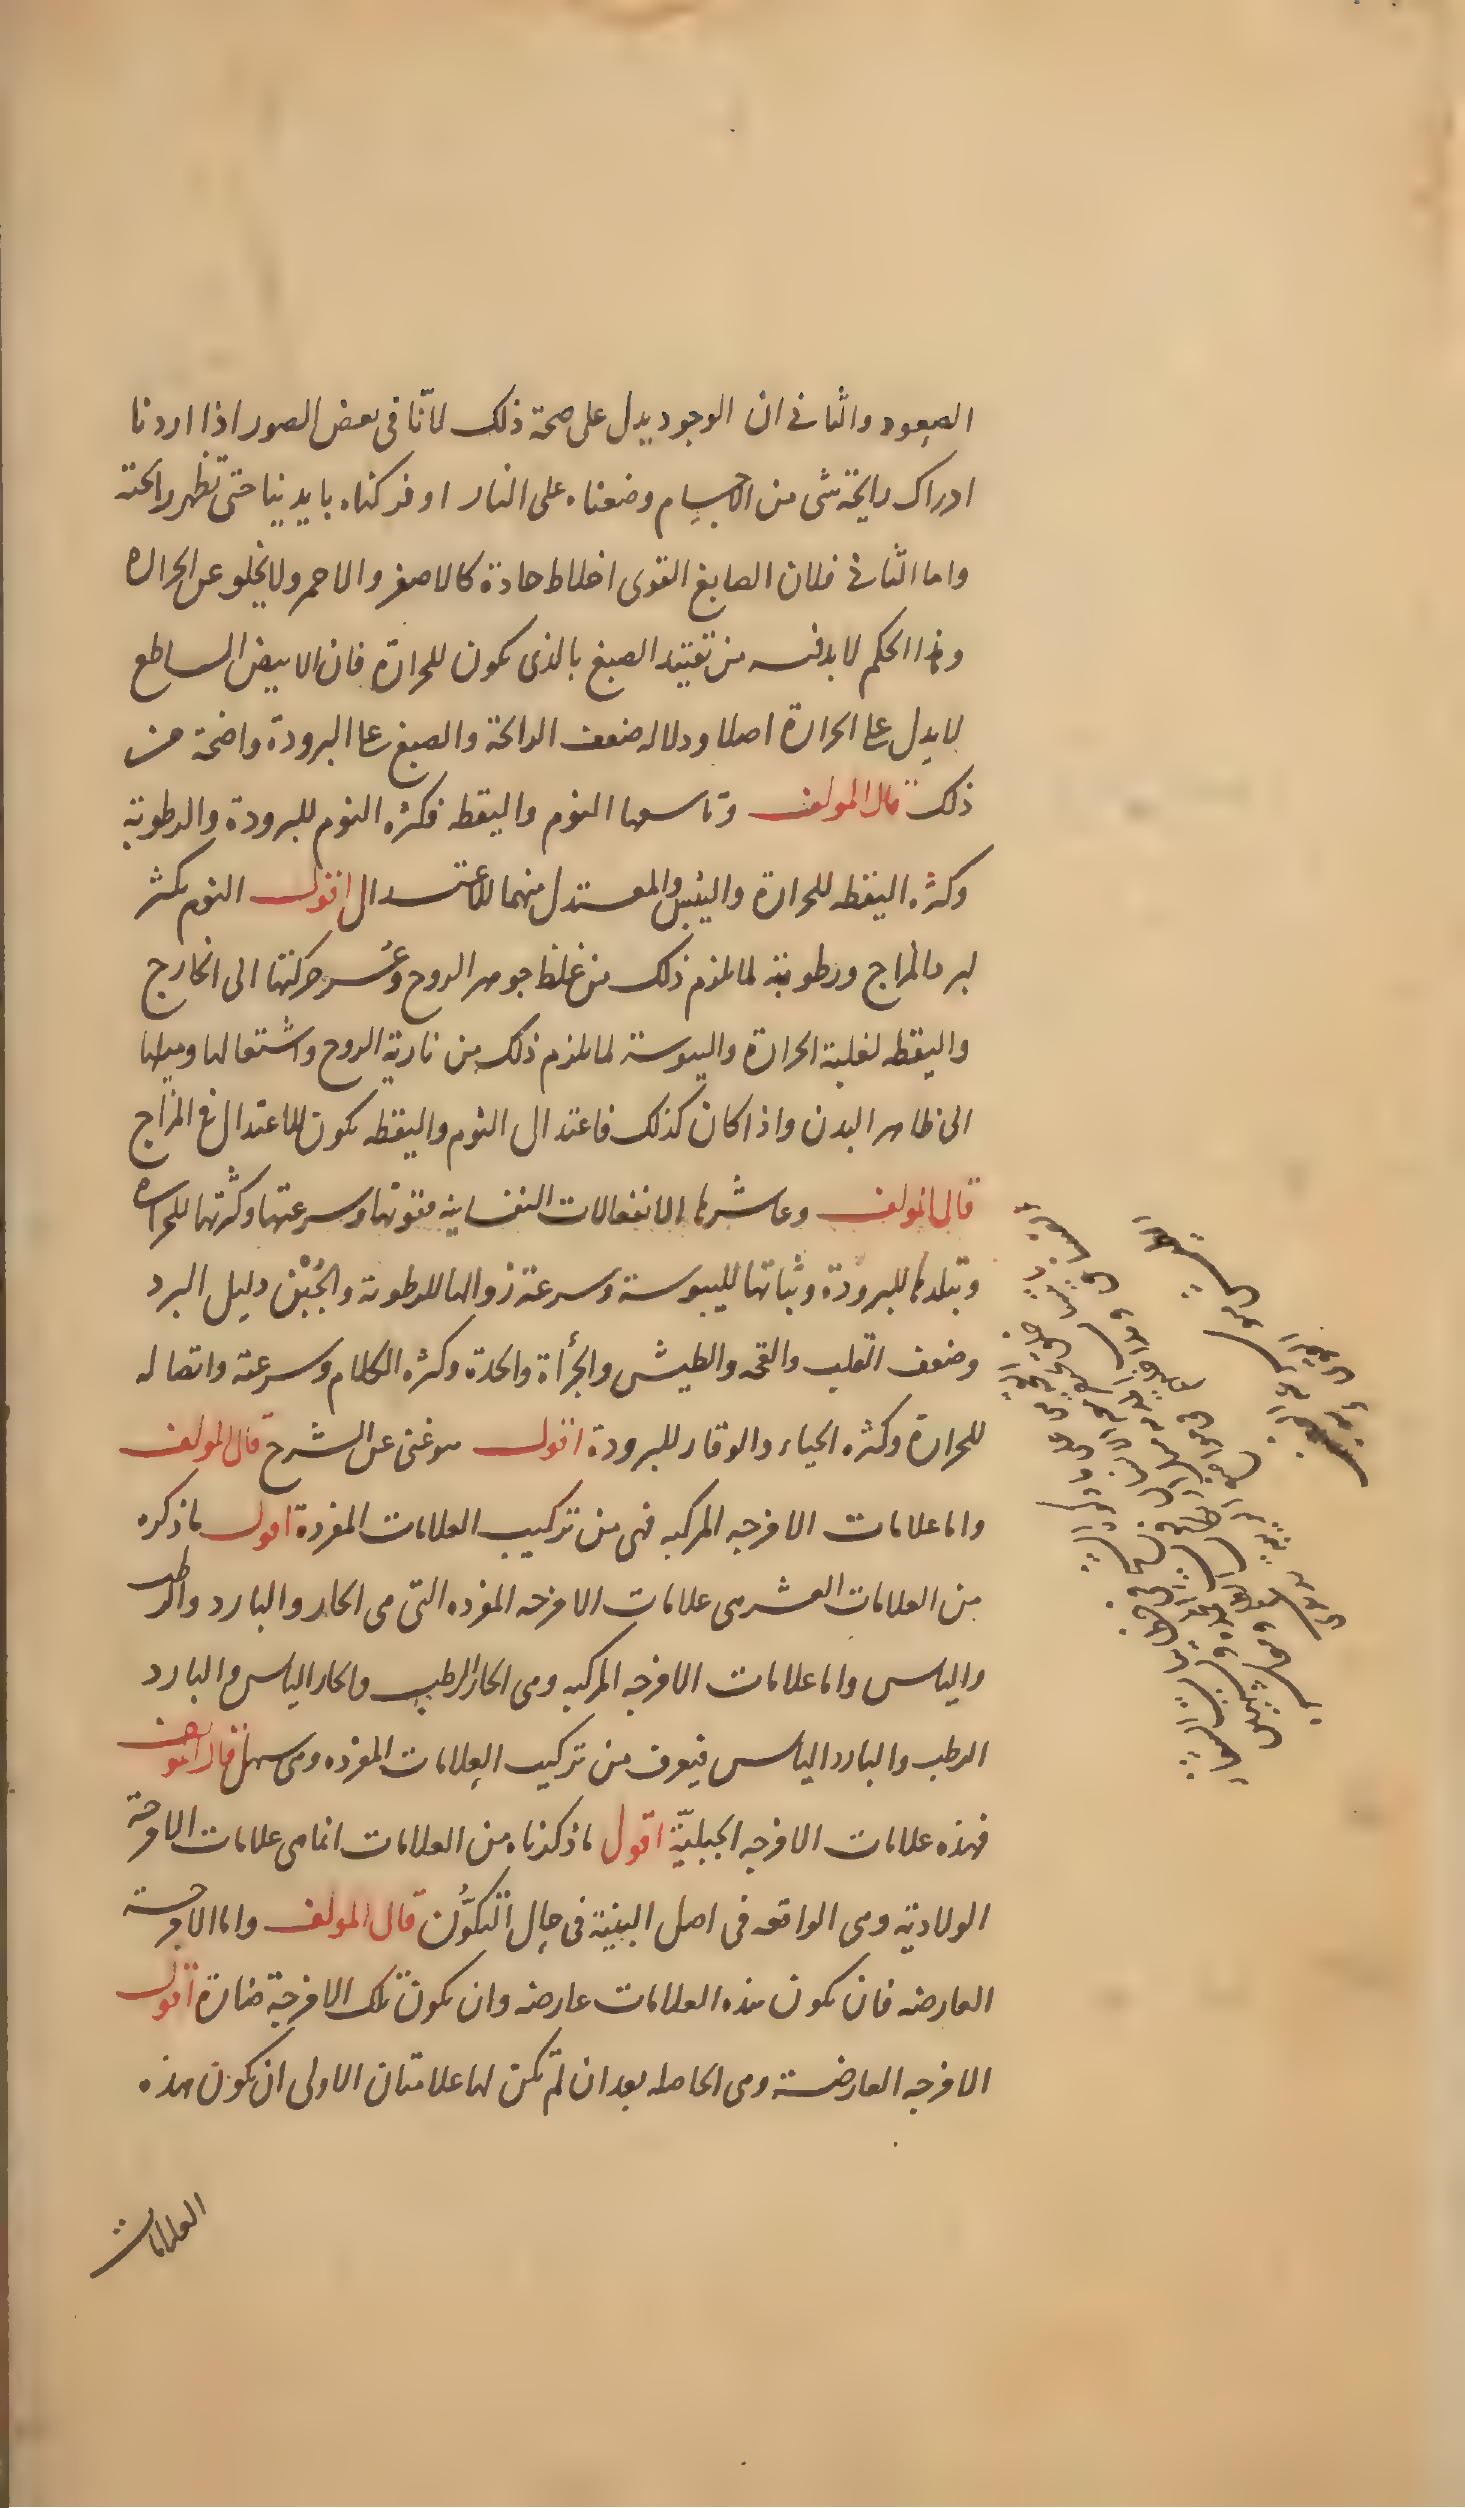 الصعود والثانى ان الوجود يدل على صحة ذلك لانّا فى بعض الصور اذا اردنا
ادراك رايحة شى من الاجسام وضعناه على النار او فركناه بايدينا حتى تظهر رائحته
واما الثانى فلان الصابغ القوى اخلاط حادة كالاصفر والاحمر ولا يخلو عن الحراره
وهذا الحكم لابد فيه من تقييد الصبغ بالذى يكون للحرارة فان الابيض الساطع
لا يدل على الحرارة اصلا ودلاله ضعف الرائحة والصبغ على البرودة واضحة من
ذلك قال المولف وتاسعها النوم واليقظه فكثره النوم للبرودة والرطوبة
وكثره اليقظه للحرارة واليبس والمعتدل منهما للاعتدال اقول النوم يكثر
لبرد المزاج ورطوبته لما يلزم ذلك من غلظ جوهر الروح وعُسر حركتها الى الخارج
واليقظه لغلبة الحرارة واليبوسة لما يلزم ذلك من نارية الروح واشتعالها وميلها
الى ظاهر البدن واذا كان كذلك فاعتدال النوم واليقظه يكون للاعتدال فى المزاج
قال المولف وعاشرها الانفعالات النفسانيه فقوتها وسرعتها وكثرتها للحراره
وتبلدها للبرودة وثباتها لليبوسة وسرعة زوالها للرطوبة والجُبْن دليل البرد
وضعف القلب والقحه والطيش والجرأة والحدة وكثره الكلام وسرعته واتصاله
للحرارة وكثره الحياء والوقار للبرودة اقول هو غنى عن الشرح قال المولف
واما علامات الامزجه المركبه فهى من تركيب العلامات المفردة اقول ما ذكره
من العلامات العشر هى علامات الامزجه المفرده التى هى الحار والبارد والرطب
واليابس واما علامات الامزجه المركبه وهى الحار الرطب والحار اليابس والبارد
الرطب والبارد اليابس فيعرف من تركيب العلامات المفرده وهى سهل قال المولف
فهذه علامات الامزجه الجبليّة اقول ما ذكرناه من العلامات انما هى علامات الامزجة
الولادية وهى الواقعه فى اصل البنية فى حال التكوُّن قال المولف واما الامزجة
العارضه فان يكون هذه العلامات عارضه وان يكون تلك الامزجة ضارة اقول
الامزجه العارضة وهى الحاصله بعد ان لم تكن لها علامتان الاولى ان يكون هذه
العلامات